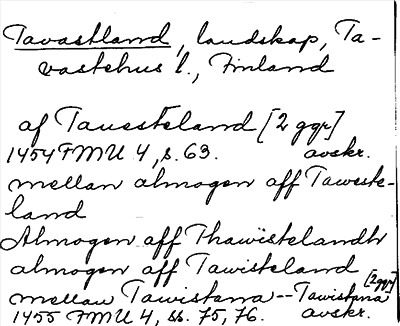 Tavastland, landskap, Ta-
vastehus l., Finland
af Tauesteland [2 ggr]
1454 FMU 4, s. 63. avskr.
mellan almogen aff Taweste-
land
Almogen aff Thawistelandh
almogen aff Tawisteland
mellan Tawistana -- Tawistena [2 ggr]
1455 FMU 4, ss. 75, 76. avskr.